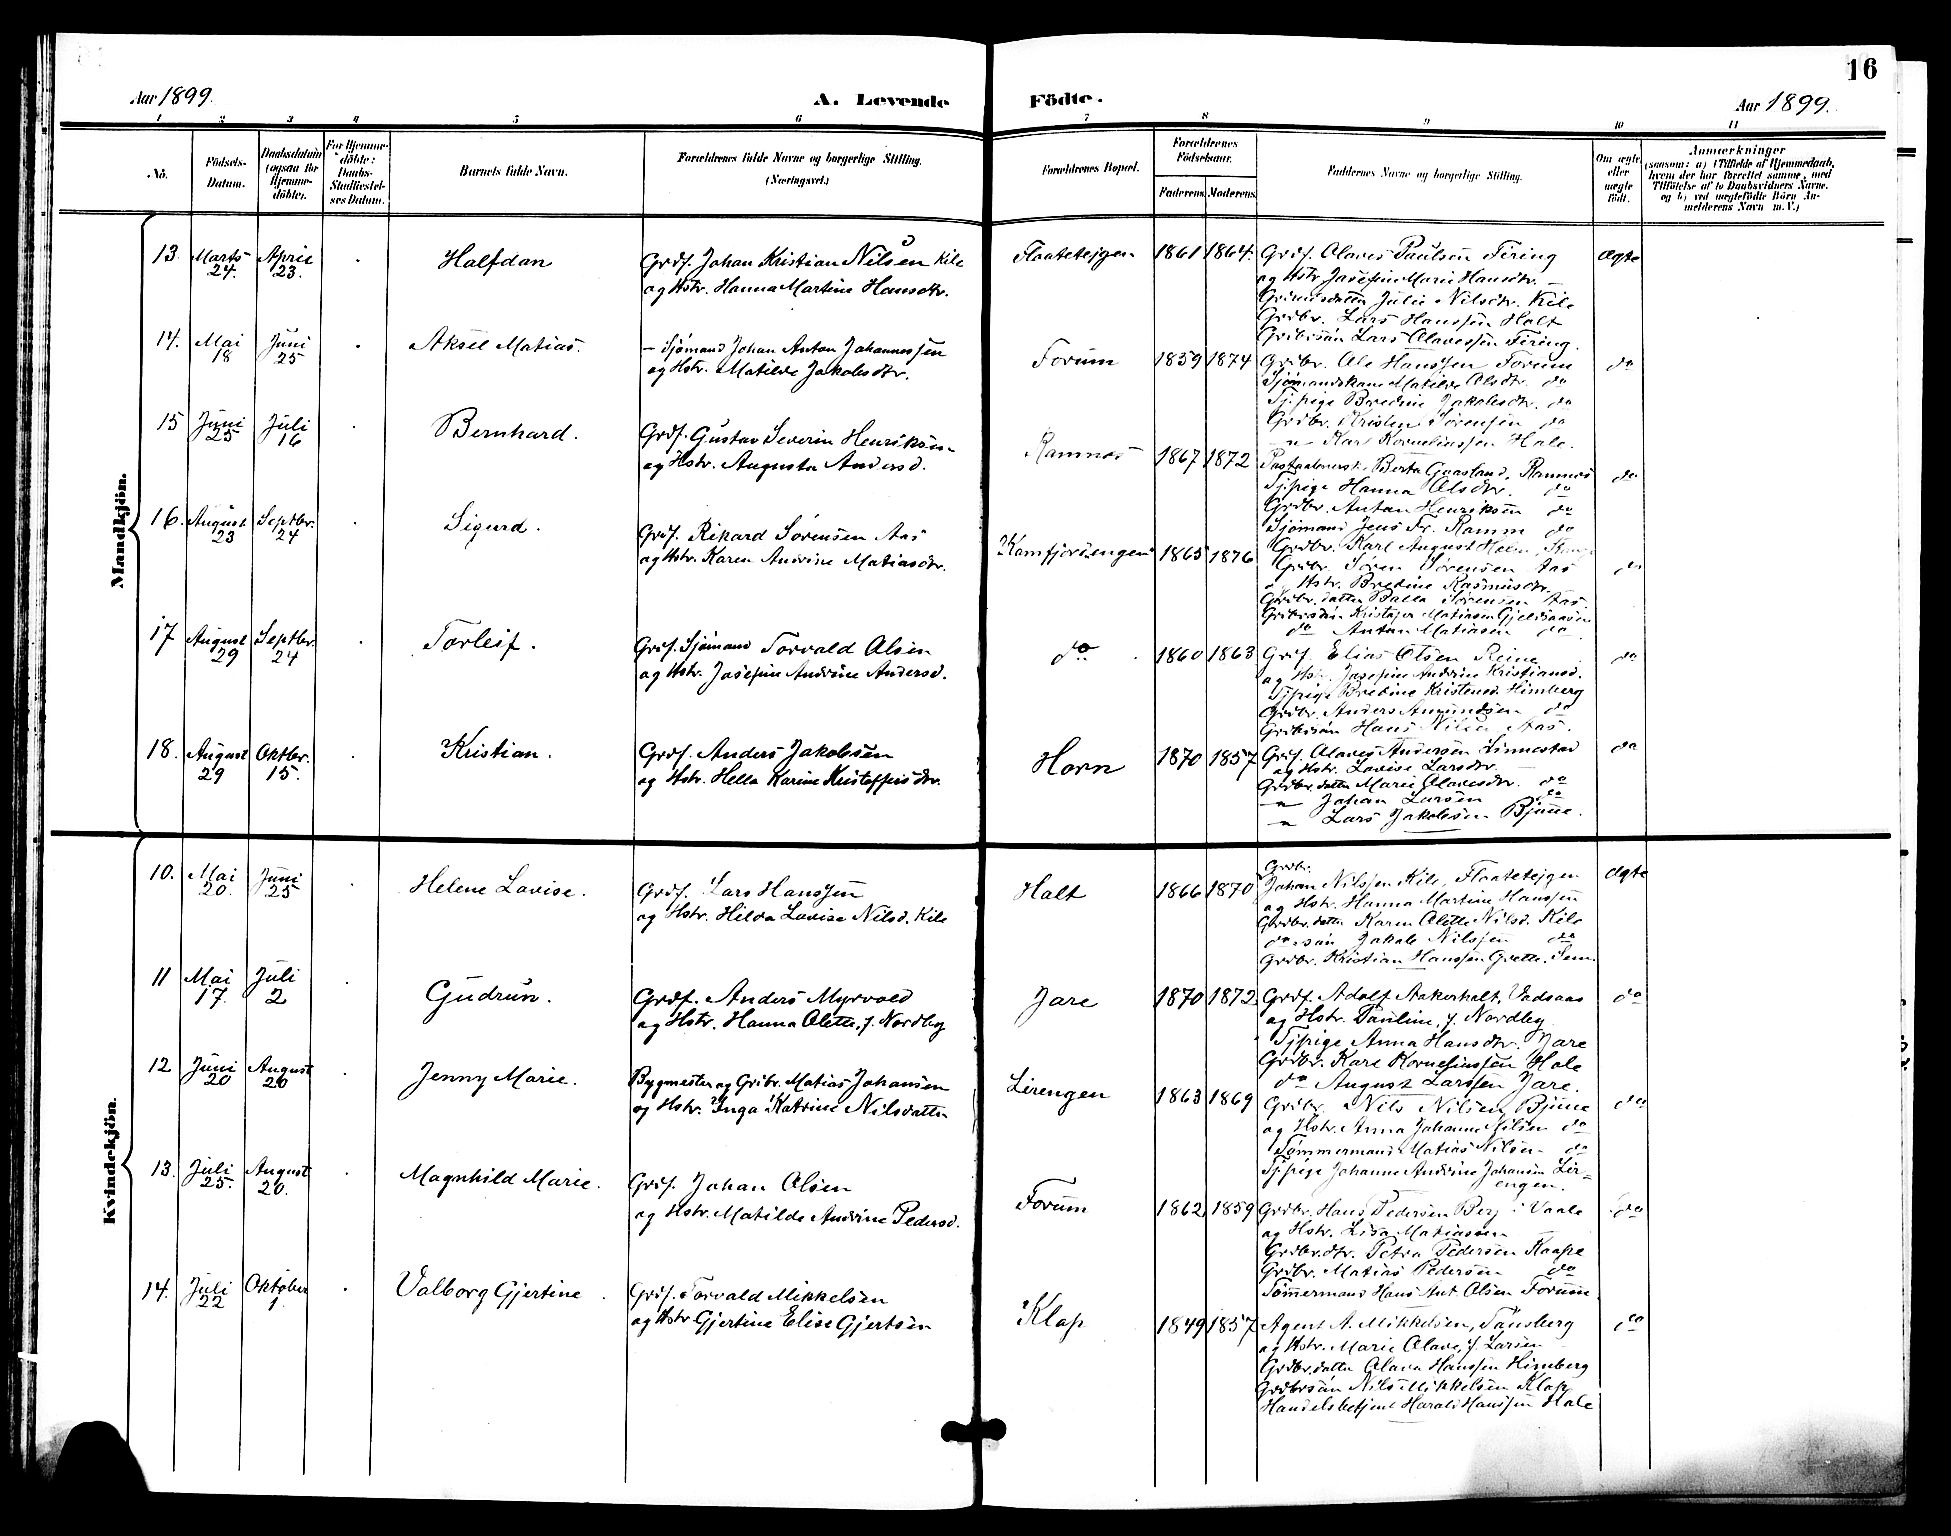 16
Aar 1899.
A. Levende Födte.
Aar 1899.
1 2 3 4 5 6 7 8 9 10 11
No.
Födsels-
Datum.
Daabsdatum
(ogsaa for
Hjemme-
döbte).
For Hjemme-
döbte:
Daabs-
Stadfæstel-
ses Datum.
Barnets fulde Navn.
Forældrenes fulde Navne og borgerlige Stilling.
(Næringsvei.)
Forældrenes Bopæl.
Forældrenes
Födselsaar.
Faderens. Moderens.
Faddernes Navne og borgerlige Stilling.
Om ægte
eller
uægte
födt.
Anmærkninger
(saasom: a) i Tilfælde af Hjemmedaab,
hvem der har forrettet samme, med
Tilföielse af to Daabsvidners Navne.
og b) ved uægtefödte Börn An-
melderens Navn m. V.)
Mandkjön.
13. Marts 24. April 23. Halfdan
Grdf. Johan Kristian Nilsen Kile
og Hstr. Hanna Martine Hansdtr.
Flaatetejgen 1861 1864.
Grdf. Olaves Paulsen Firing
og Hstr. Josefine Marie Hansdtr. —
Julie Nilsdtr. Kile
Grdbr. Lars Hanssen Holt
Grdbrsön Lars Olavessen Firing.
Ægte
14. Mai 18 Juni 25 Aksel Matias.
— Sjömand Johan Anton Johannessen
og Hstr. Matilde Jakobsdtr.
Forum 1859 1874
Grdbr. Ole Hanssen Forum
Sjömandskone Matilde Olsdtr. do
Tj.pige Bredine Jakobsdtr. do
Grdbr. Kristen Sörensen do
—"— Karl Korneliussen Hole.
do
15 Juni 25 Juli 16 Bernhard.
Grdf. Gustav Severin Henriksen
og Hstr. Augusta Andersd.
Ramnæs 1867 1872
Berta Gaasland, Ramnæs
Tj.pige Hanna Olsdtr. do
Grdbr. Anton Henriksen do
Sjömand Jens Fr. Ramm do
Grdbr. Karl August Helm,
do
16. August 23 Septbr. 24 Sigurd.
Grdf. Rikard Sörensen Aas
og Hstr. Karen Andrine Matiasdtr.
Kamfjordengen 1865 1876
Grdbr. Sören Sörensen Aas
Hstr. Bredine Rasmusdtr.
Grdbr. datter Sörensen Aas.
Grdbrsön Kristofer Matiasen
do Anton Matiasen do
do
17 August 29 Septbr. 24 Torleif.
Grdf. Sjömand Torvald Olsen
og Hstr. Josefine Andrine Andersd.
do 1860 1863
Grdf. Elias Olsen Reine
og Hstr. Josefine Andrine Kristiansd.
Tj.pige Bredine Kristensd. Himberg
Grdbr. Anders Amundsen do
Grdbrsön Hans Nilsen Aas.
do
18. August 29 Oktbr. 15. Kristian.
Grdf. Anders Jakobsen
og Hstr. Hella Karine Kristoffersdtr.
Horn 1870 1857
Grdf. Olaves Andersen Linnestad
og Hstr. Lovise Larsdtr. —
Grdbr. datter Marie Olavesdtr. do
—"— Johan Larsen do
—"— Lars Jakobsen Bjune.
do
Kvindekjön.
10. Mai 20. Juni 25 Helene Lovise.
Grdf. Lars Hanssen
og Hstr. Hilda Lovise Nilsd. Kile
Holt 1866 1870
Grdbr.
Johan Nilssen Kile, Flaatetejgen
og Hstr. Hanna Martine Hanssen
Grdbr. datter Karen Olette Nilsd. Kile
do sön Jakob Nilssen do
Grdbr. Kristian Hanssen Grette. Sem.
Ægte
11 Mai 17. Juli 2 Gudrun.
Grdf. Anders Myrvold
og Hstr. Hanna Olette, f. Nordby
Jare 1870 1872
Grdf. Adolf Aakerholt, Vadsaas
og Hstr. Pauline, f. Nordby
Tj.pige Anna Hansdtr. Jare
Grdbr. Karl Korneliussen Hole
do August Larssen Jare.
do
12 Juni 20 August 20 Jenny Marie.
Bygmester og Grdbr. Matias Johansen
og Hstr. Inga Katrine Nilsdatter
Lirengen 1863 1869
Grdbr. Nils Nilsen, Bjune
og Hstr. Anna Johanne Nilsen do
Tømmermand Matias Nilsen do
Tj.pige Johanne Andrine Johansen Lir-
engen.
do
13. Juli 25. August 20. Magnhild Marie.
Grdf. Johan Olsen
og Hstr. Matilde Andrine Pedersd.
Forum 1862 1859
Grdbr. Hans Pedersen Berg i Vaale
og Hstr. Lisa Matiassen
Grdbr.dtr. Petra Pedersen Kaape
Grdbr. Matias Pedersen do
Tømmermand Hans Ant. Olsen Forum.
do
14. Juli 22 Oktober 1. Valborg Gjertine.
Grdf. Torvald Mikkelsen
og Hstr Gjertine Elise Gjertsen
Klop 1849 1857
Agent A. Mikkelsen, Tønsberg
og Hstr. Marie Olave, f. Larsen
Grdbr. datter Olava Hanssen Himberg
Grdbrsön Nils Mikkelsen Klop
Handelsbetjent Harald Hanssen Hole
do